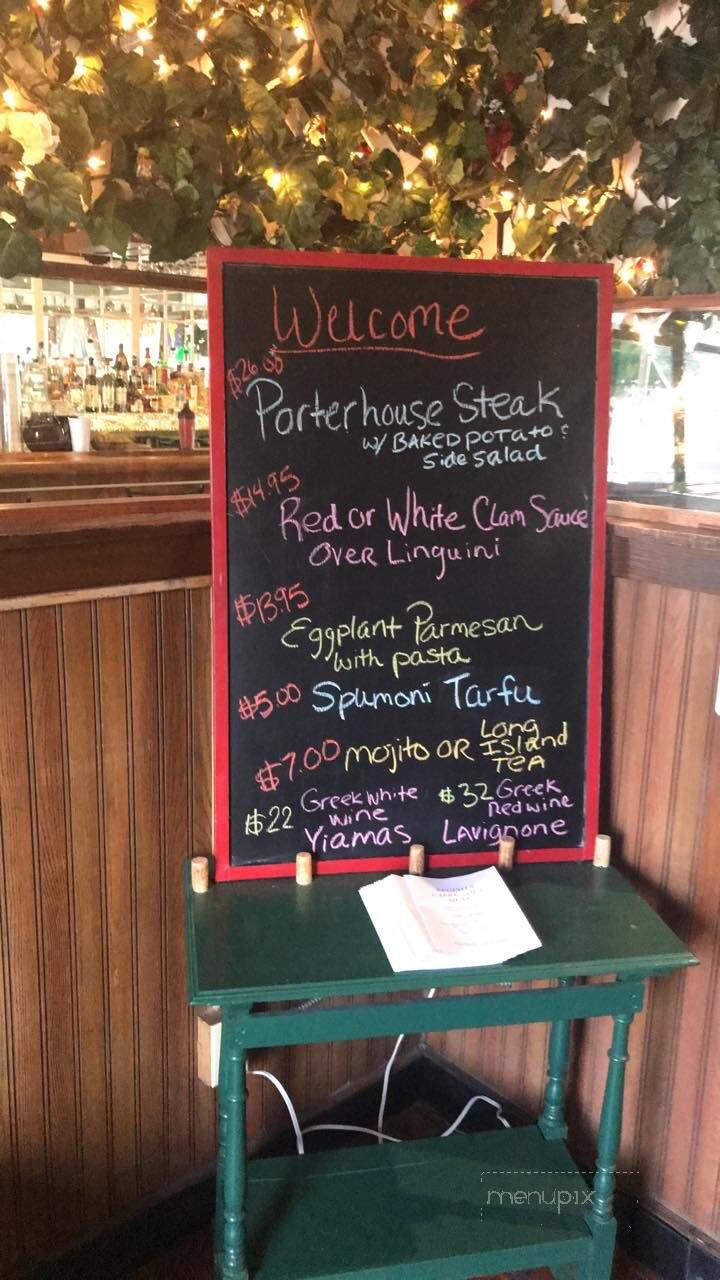 Welcome
$26.00
Porterhouse Steak
w/ BAKED POTATO &
Side Salad
$14.95
Red or White Clam Sauce
OVER Linguini
$13.95
Eggplant Parmesan
with pasta
$5.00 Spumoni Tarfu
$7.00 Mojito OR Long Island TEA
$22 Greek White Wine Yiamas
$32 Greek Red wine LAvignone
menupix